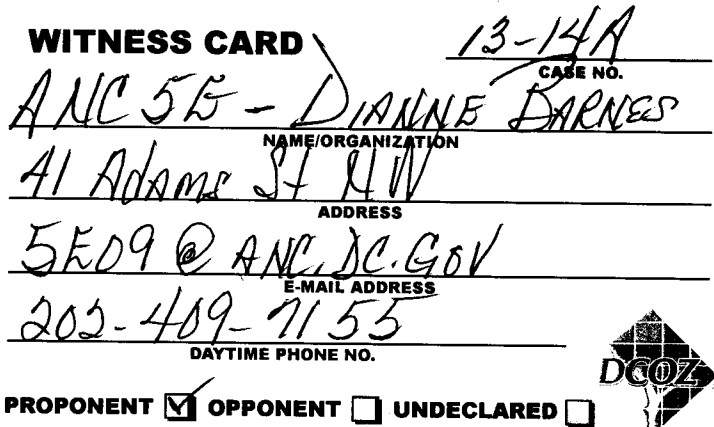 WITNESS CARD 13-14A
CASE NO.
ANC 5E - DIANNE BARNES
NAME/ORGANIZATION
41 Adams St NW
ADDRESS
5E09 @ ANC.DC.GOV
E-MAIL ADDRESS
202-409-7155
DAYTIME PHONE NO.
DCOZ
PROPONENT ☑ OPPONENT ☐ UNDECLARED ☐